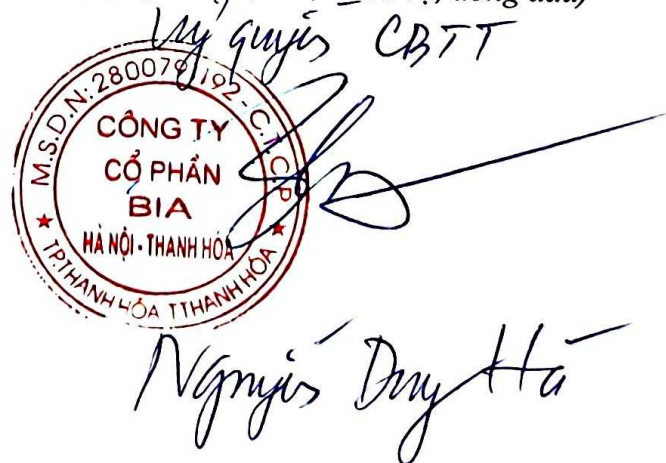 đóng dấu)
Uỷ quyền CBTT
M.S.D.N: 2800791192 - C.T.C.P
CÔNG TY
CỔ PHẦN
BIA
HÀ NỘI - THANH HÓA
TP.THANH HÓA T.THANH HÓA
Nguyễn Duy Hà